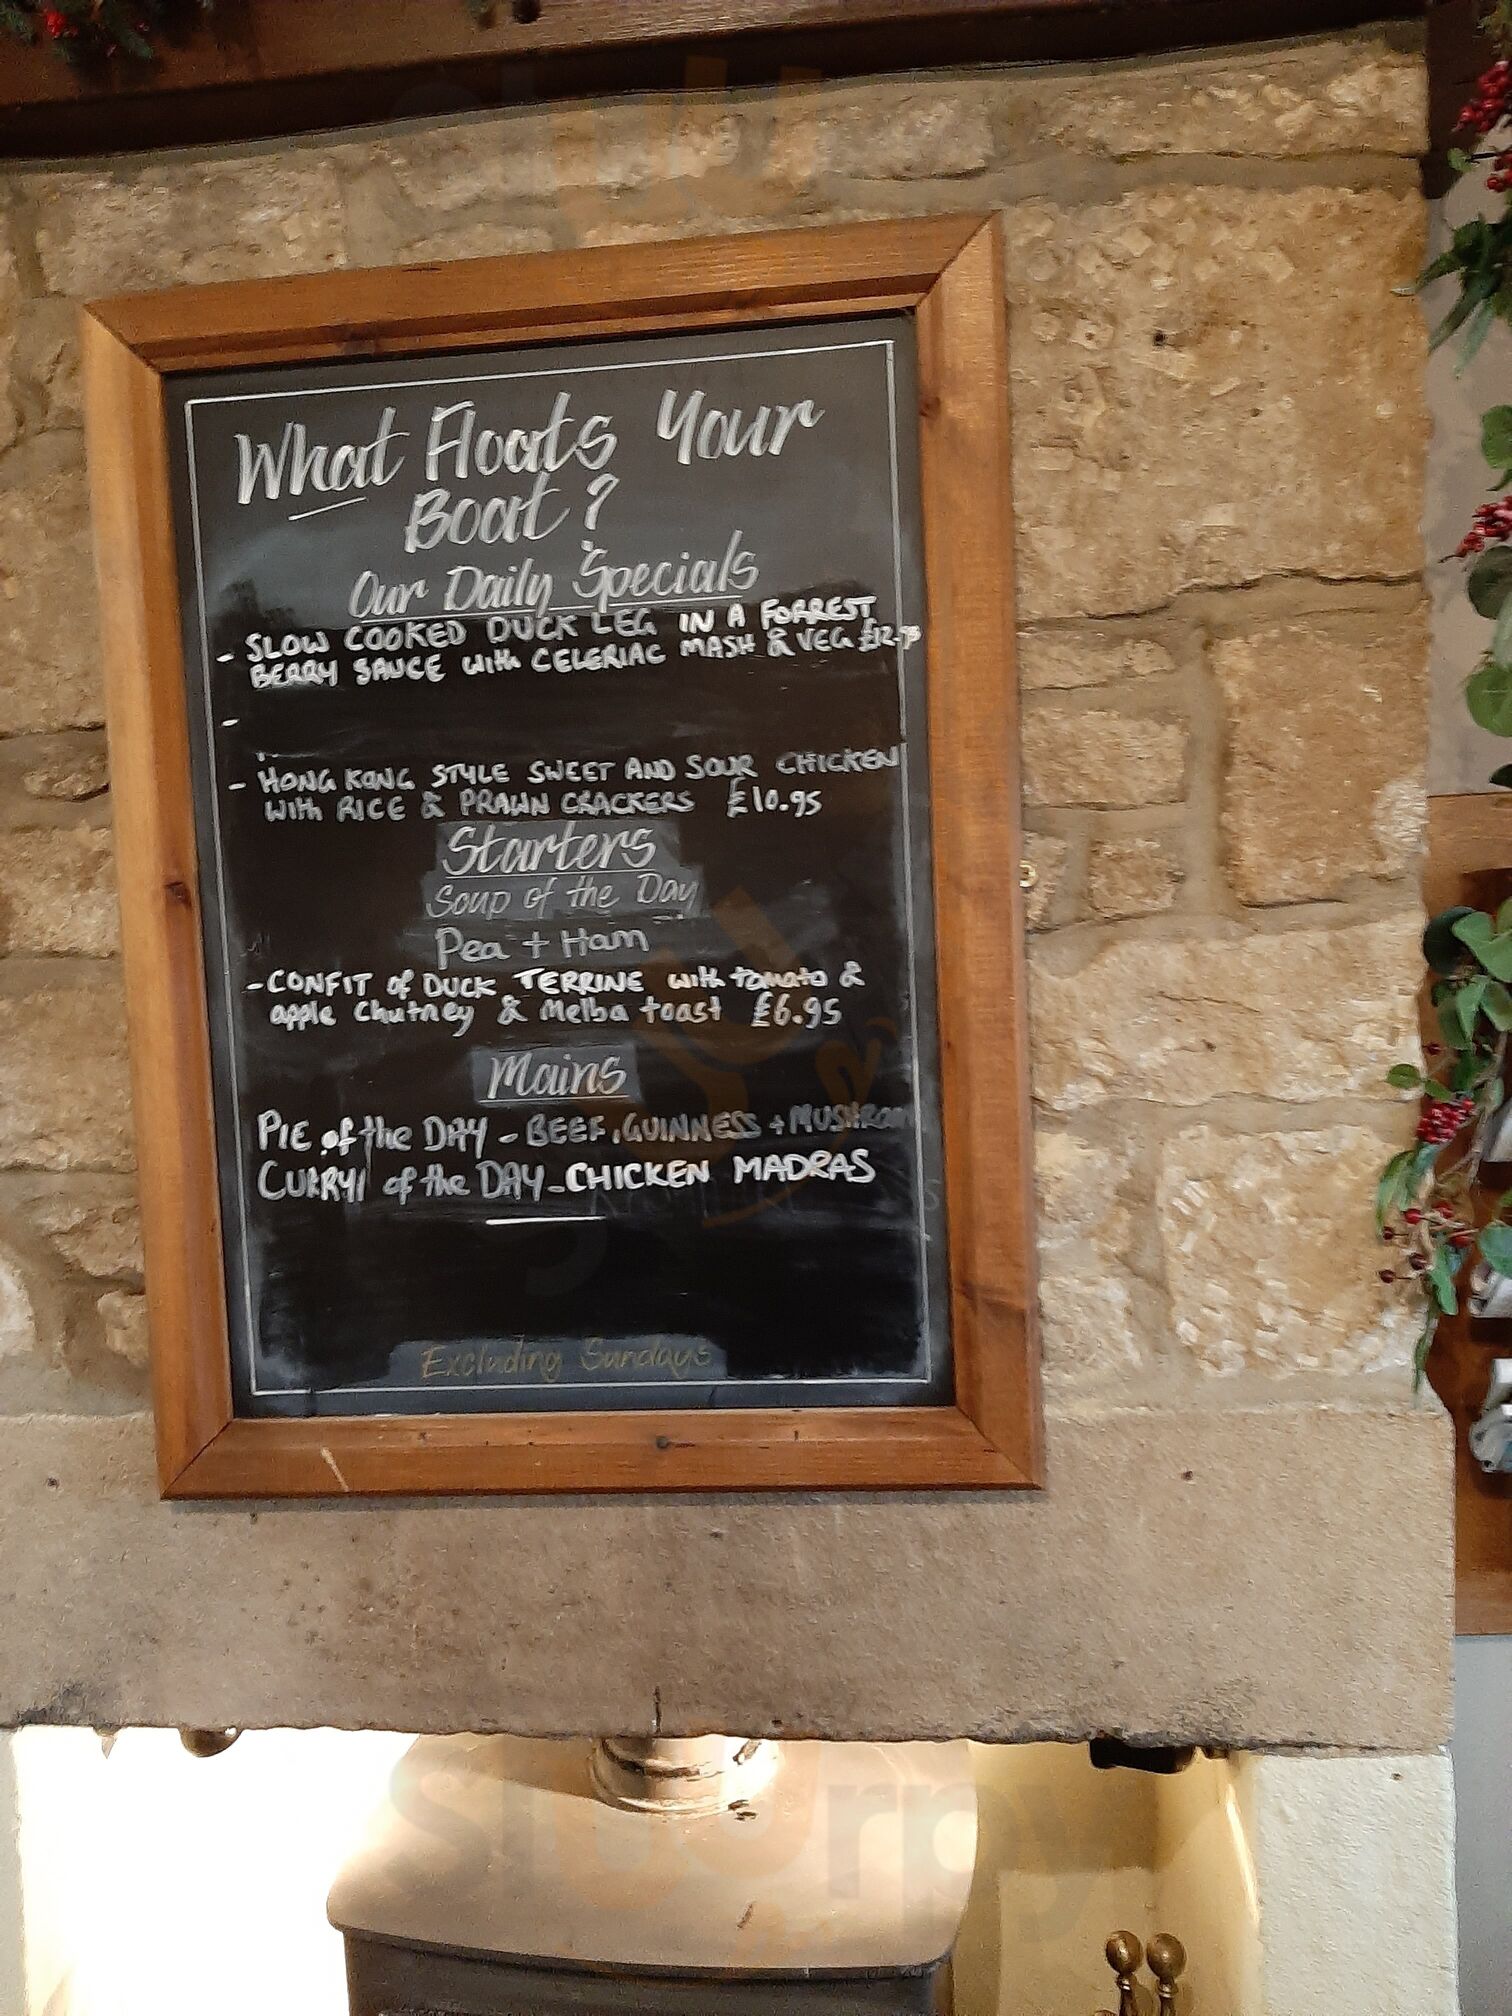 What Floats Your
Boat?
Our Daily Specials
- SLOW COOKED DUCK LEG IN A FORREST
BERRY SAUCE with CELERIAC MASH & VEG
-
- HONG KONG STYLE SWEET AND SOUR CHICKEN
with RICE & PRAWN CRACKERS £10.95
Starters
Soup of the Day
Pea + Ham
- CONFIT of DUCK TERRINE with tomato &
apple Chutney & Melba toast £6.95
Mains
PIE of the DAY - BEEF, GUINNESS + MUSHROOM
CURRY of the DAY - CHICKEN MADRAS
Excluding Sundays
slurpy